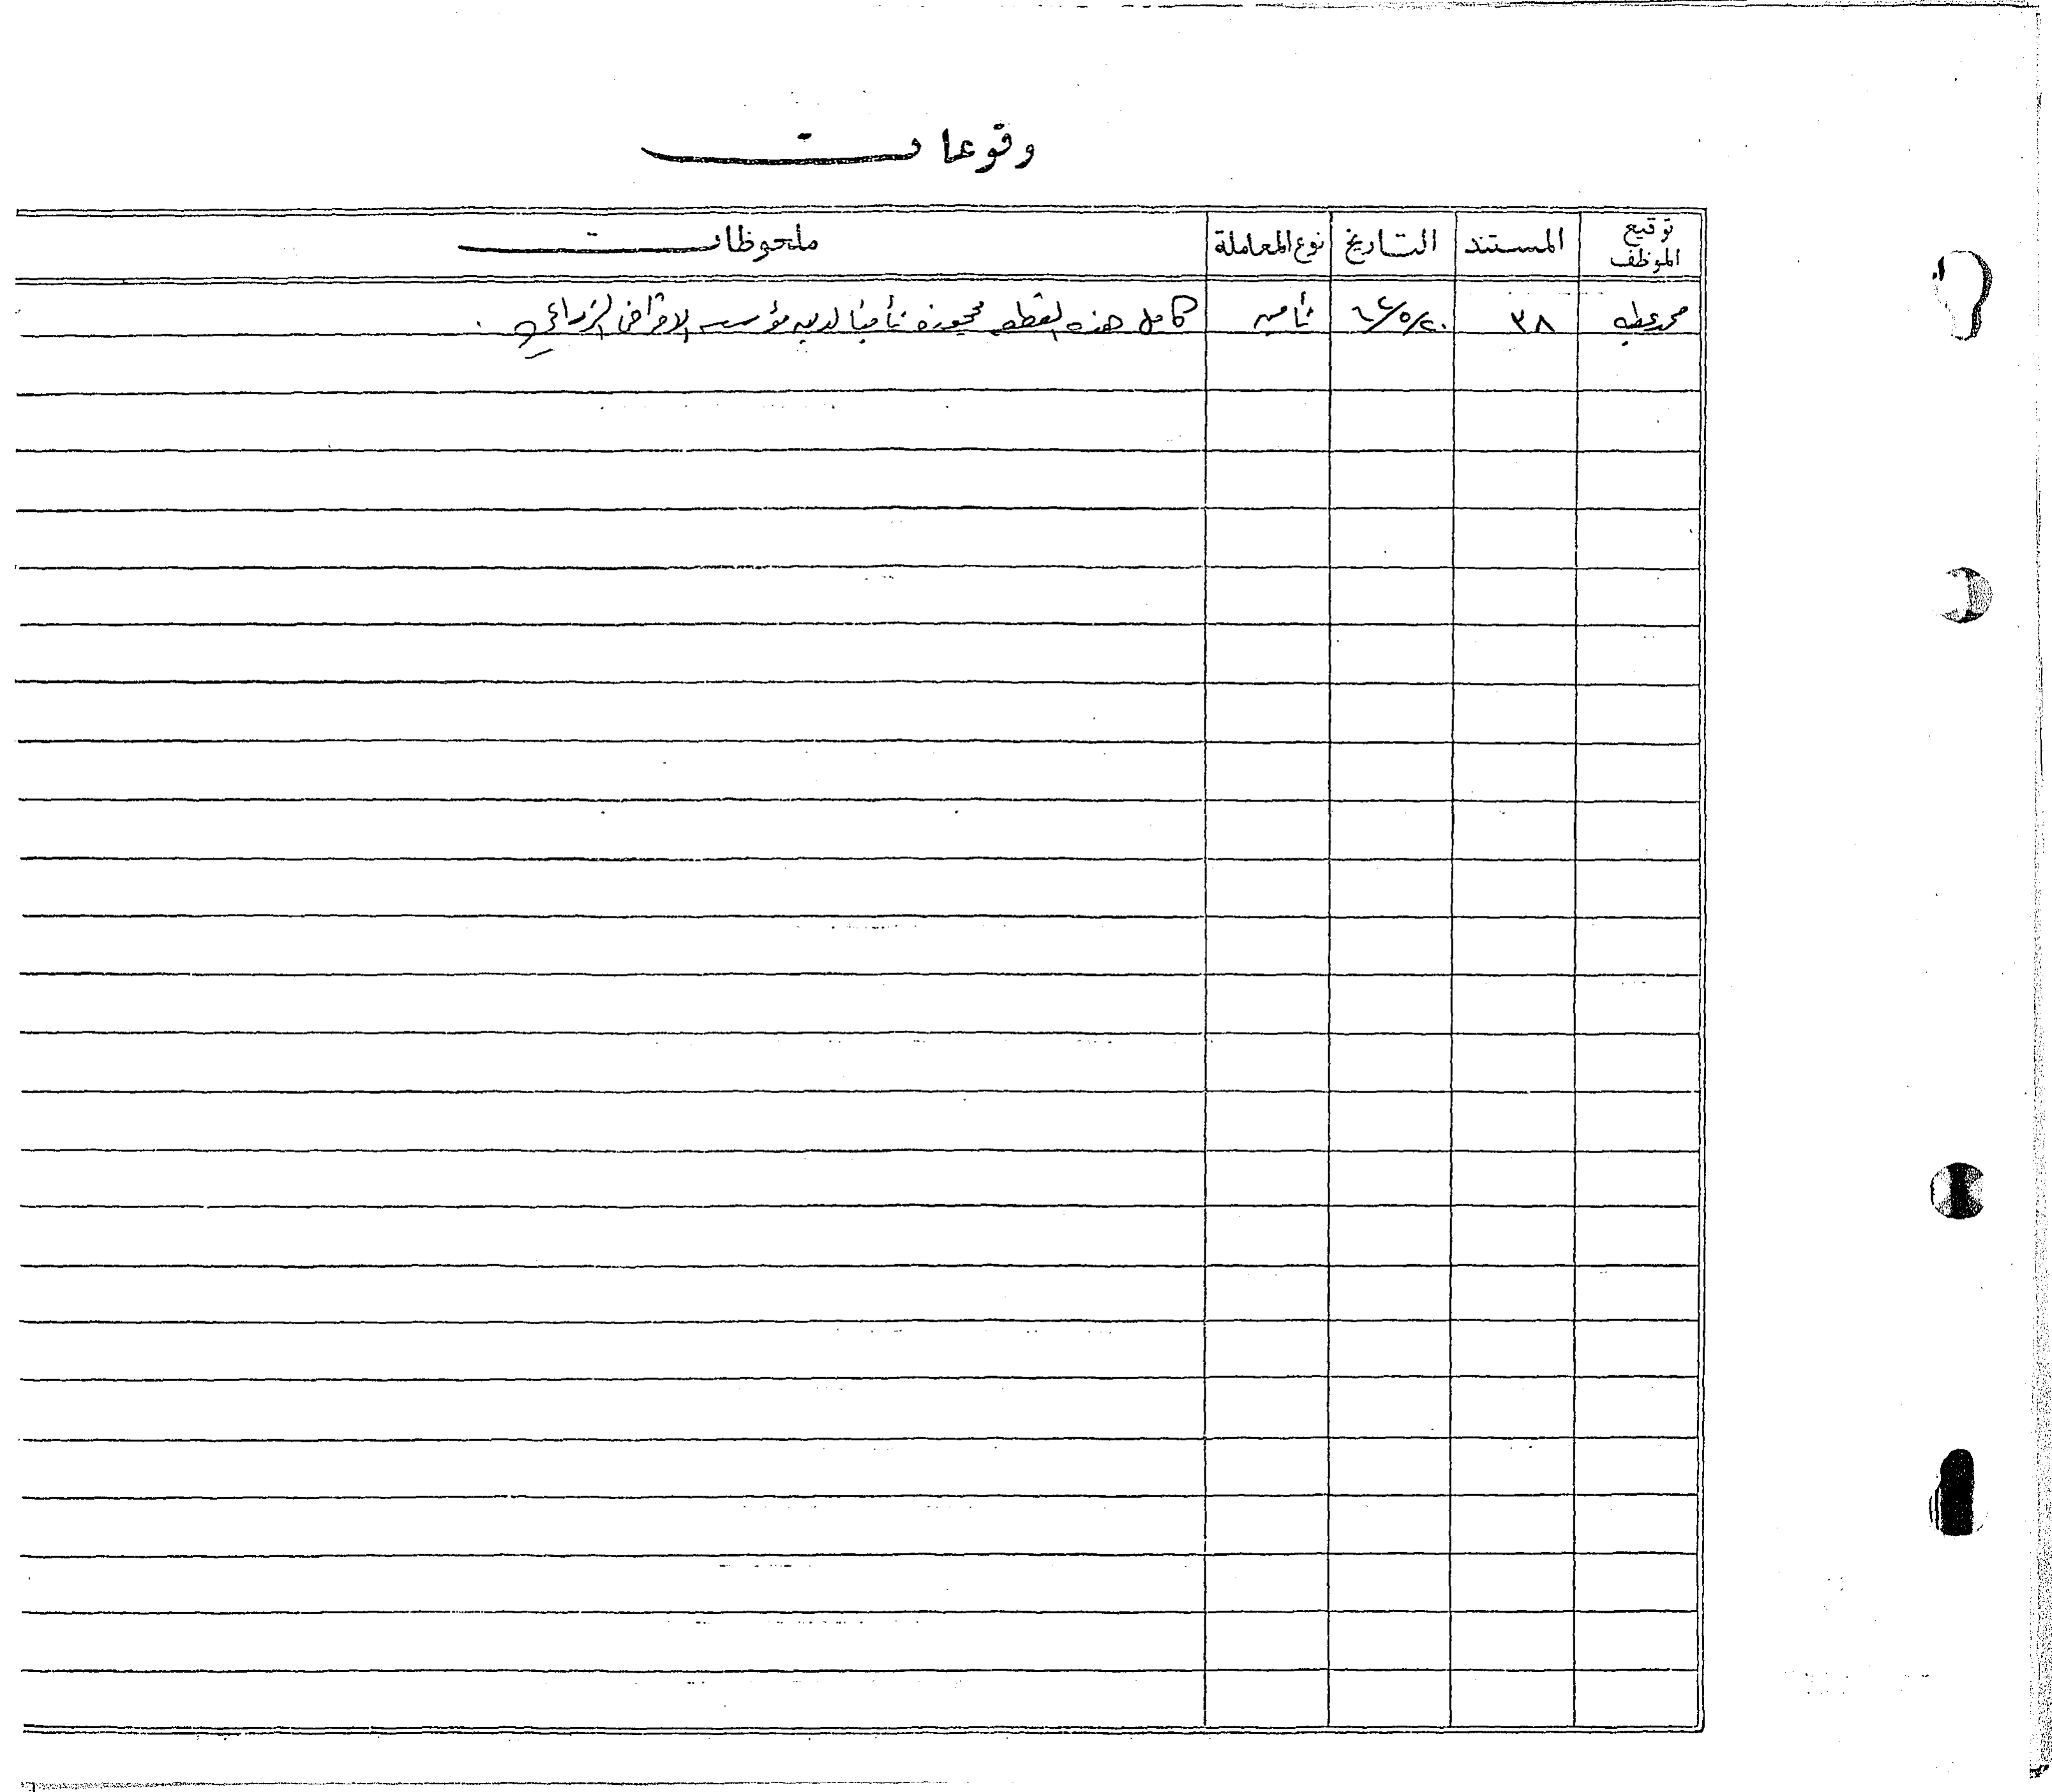 وقوعات
توقيع الموظف | المستند | التاريخ | نوع المعاملة | ملحوظات
محمد عطيه | ٣٨ | ٦٤/٥/٢٠ | تأمين | كامل هذه القطعه محجوزه تأمينا لدى مؤسسة الاقراض الزراعي .